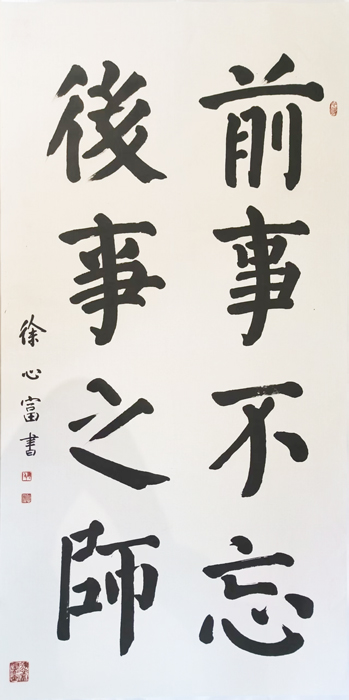 前事不忘
後事之師
徐心富書